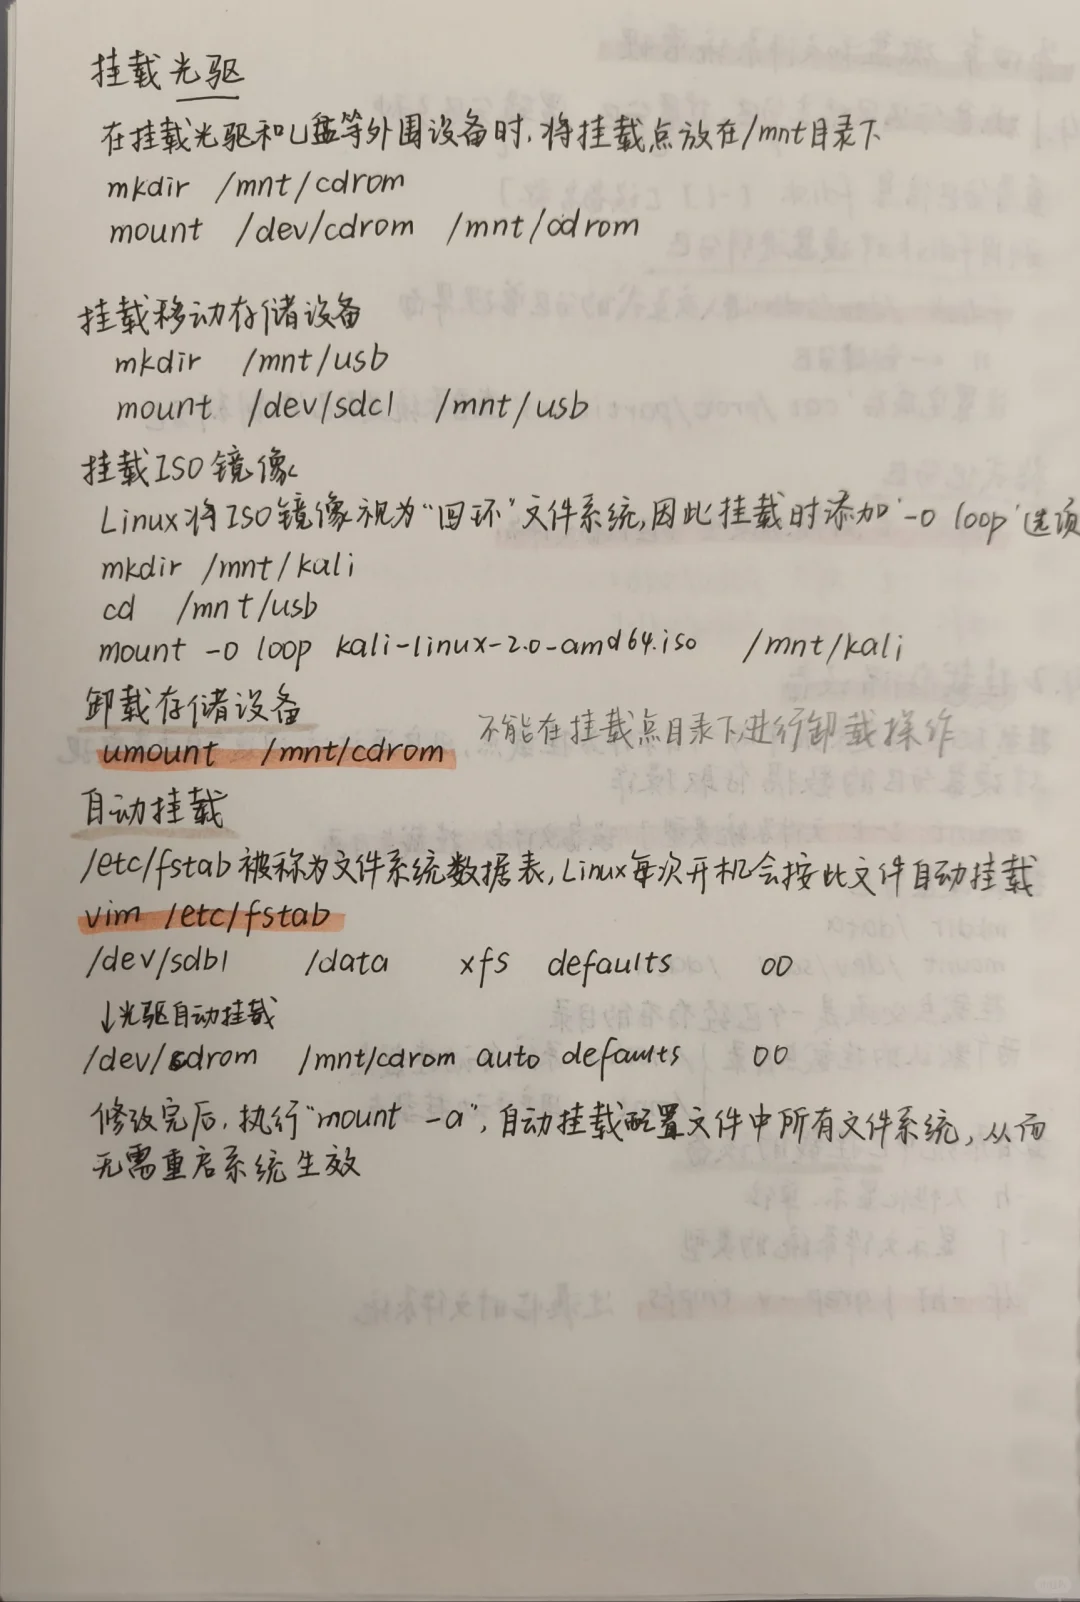 挂载光驱
在挂载光驱和U盘等外围设备时,将挂载点放在/mnt目录下
mkdir /mnt/cdrom
mount /dev/cdrom /mnt/cdrom
挂载移动存储设备
mkdir /mnt/usb
mount /dev/sdc1 /mnt/usb
挂载ISO镜像
Linux将ISO镜像视为“回环”文件系统,因此挂载时添加'-o loop'选项
mkdir /mnt/kali
cd /mnt/usb
mount -o loop kali-linux-2.0-amd64.iso /mnt/kali
卸载存储设备
umount /mnt/cdrom 不能在挂载点目录下进行卸载操作
自动挂载
/etc/fstab被称为文件系统数据表,Linux每次开机会按此文件自动挂载
vim /etc/fstab
/dev/sdb1 /data xfs defaults 00
↓光驱自动挂载
/dev/cdrom /mnt/cdrom auto defaults 00
修改完后,执行“mount -a”,自动挂载配置文件中所有文件系统,从而
无需重启系统生效